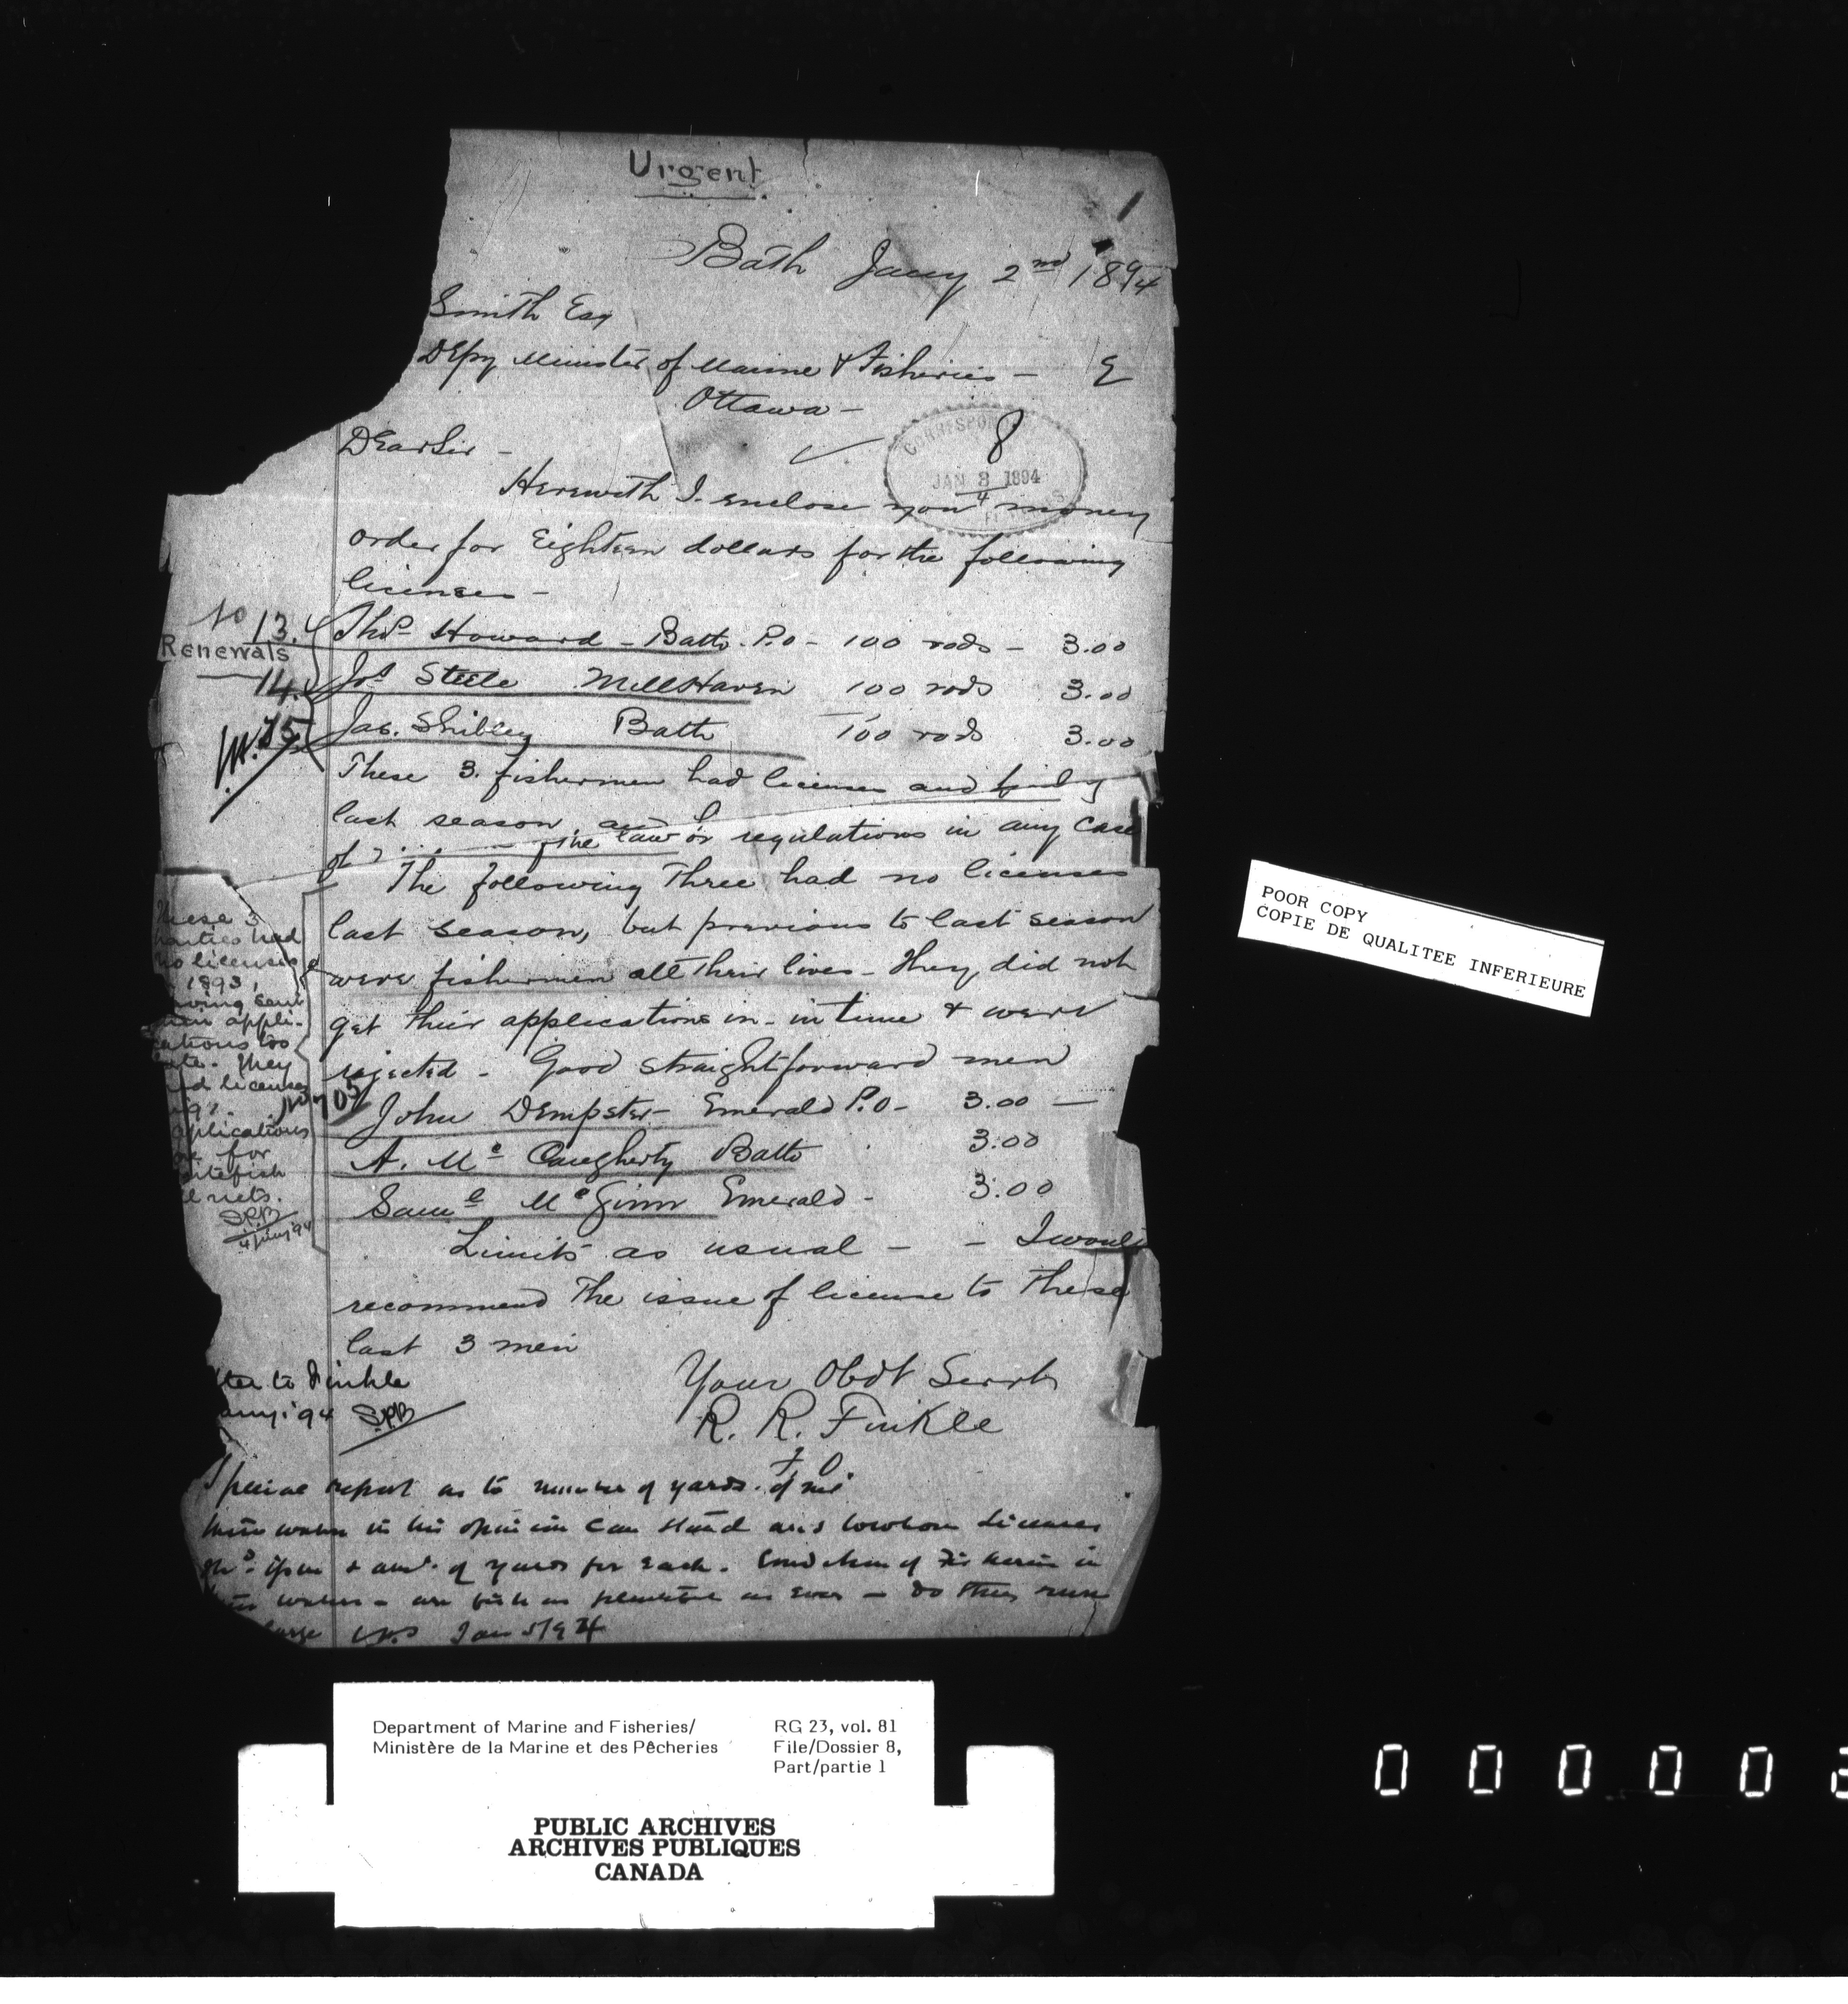 Urgent
1
Bath Jany 2nd 1894
Smith Esq
DEpy Minister of Marine & Fisheries —
Ottawa —
8
JAN 3 1894
4
DEar Sir —
Herewith I enclose you money
order for Eighteen dollars for the following
licenses —
No 13.
Renewals
14.
15
Thos Howard — Bath. P.O — 100 rods — 3.00
Jos Steele MillHaven 100 rods 3.00
Jas. Shibley Bath 100 rods 3.00
These 3. fishermen had licenses and
last season. the law or regulations in any case
of
The following Three had no licenses
last season, but previous to last season
were fishermen all their lives — They did not
get their applications in — in time & were
rejected — Good straightforward men
John DEmpster — Emerald P.O — 3.00 —
A. Mc Caugherty Bath 3.00
Saml Mc Ginn Emerald — 3.00
Limits as usual — — I would
recommend the issue of license to these
last 3 men
These 3
parties had
no licenses
1893,
having sent
their appli-
cations too
late. They
had licenses
applications
are for
whitefish
nets.
SPB
4 Jany '94
Your Obdt Servt
R. R. Finkle
F O
to Finkle
Jany. '94 SPB
Special report as to number of yards of net
these waters in his opinion can stand and
& amt. of yards for each. Condition of in
waters — are fish as plentiful as ever — do they run
large Jan 5/94
POOR COPY
COPIE DE QUALITEE INFERIEURE
Department of Marine and Fisheries/
Ministère de la Marine et des Pêcheries
RG 23, vol. 81
File/Dossier 8,
Part/partie 1
PUBLIC ARCHIVES
ARCHIVES PUBLIQUES
CANADA
0 0 0 0 0